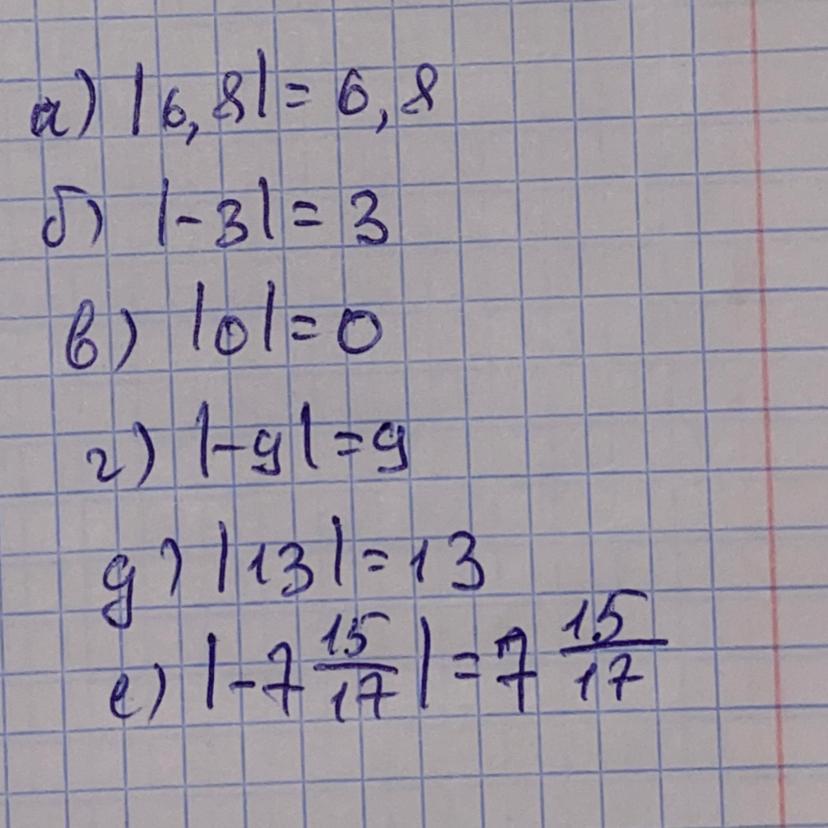 а) |6,8|= 6,8
б) |-3|= 3
в) |0|=0
г) |-9|=9
д) |13|=13
е) |-7 15/17|=7 15/17